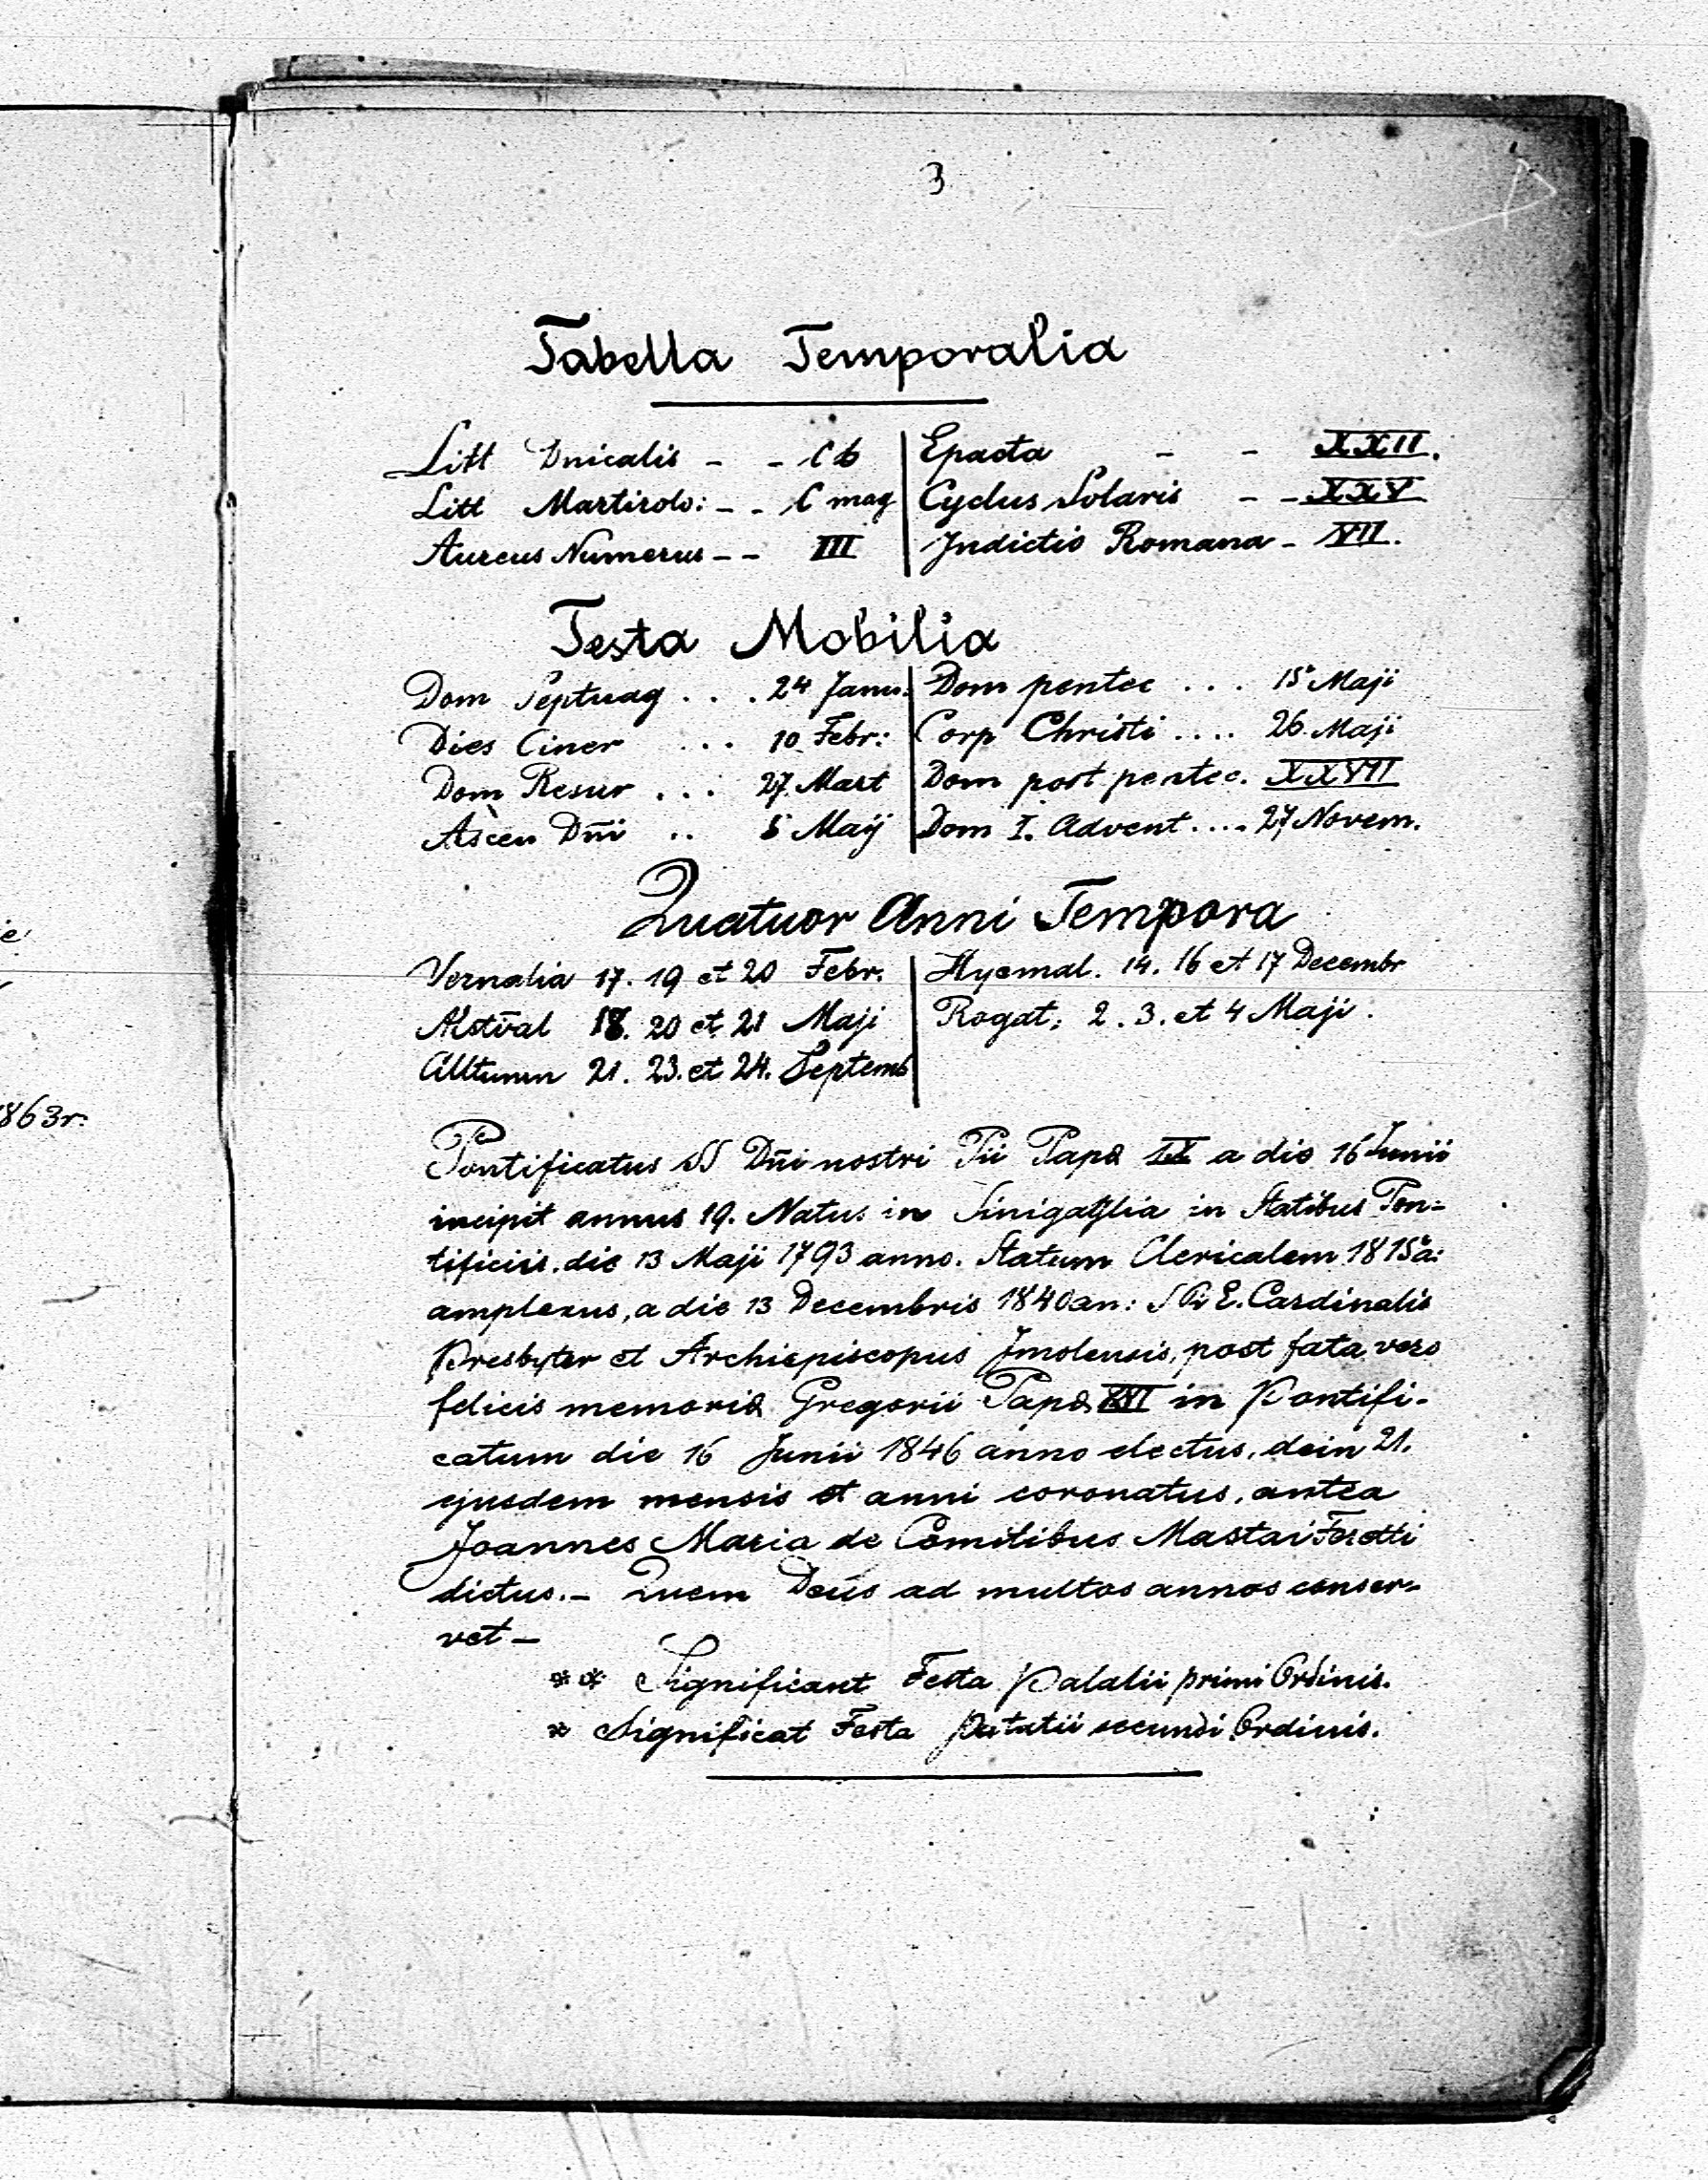 3
Tabella Temporalia
Litt Dnicalis - - C b | Epacta - - XXII.
Litt Martirolo: - - C mag | Cyclus Solaris - - XXV
Aureus Numerus - - III | Indictio Romana - VII.
Festa Mobilia
Dom Septuag . . . 24 Janu: | Dom pentec . . . 15 Maji
Dies Ciner . . . 10 Febr: | Corp Christi . . . . 26. Maji
Dom Resur . . . 27. Mart | Dom post pentec. XXVII
Ascen Dñi . . 5 Maij | Dom I. Advent . . . . 27 Novem.
Quatuor Anni Tempora
Vernalia 17. 19 et 20 Febr. | Hyemal. 14. 16 et 17 Decembr
Aestival 18. 20 et 21 Maji | Rogat: 2. 3. et 4 Maji.
Autumn 21. 23. et 24. Septemb
Pontificatus SS Dñi nostri Pii Papæ IX a die 16 Junii
incipit annus 19. Natus in Sinigaglia in Statibus Pon-
tificiis. die 13 Maji 1793 anno. Statum Clericalem 1815 a:
amplexus, a die 13 Decembris 1840 an: S R E. Cardinalis
Presbyter et Archiepiscopus Imolensis, post fata vero
felicis memoriæ Gregorii Papæ XVI in Pontifi-
catum die 16 Junii 1846 anno electus, dein 21.
ejusdem mensis et anni coronatus, antea
Joannes Maria de Comitibus Mastai Feretti
dictus. - Quem Deus ad multos annos conser-
vet -
** Significant Festa Palatii primi Ordinis.
* Significat Festa Patatii secundi Ordinis.
1863r.